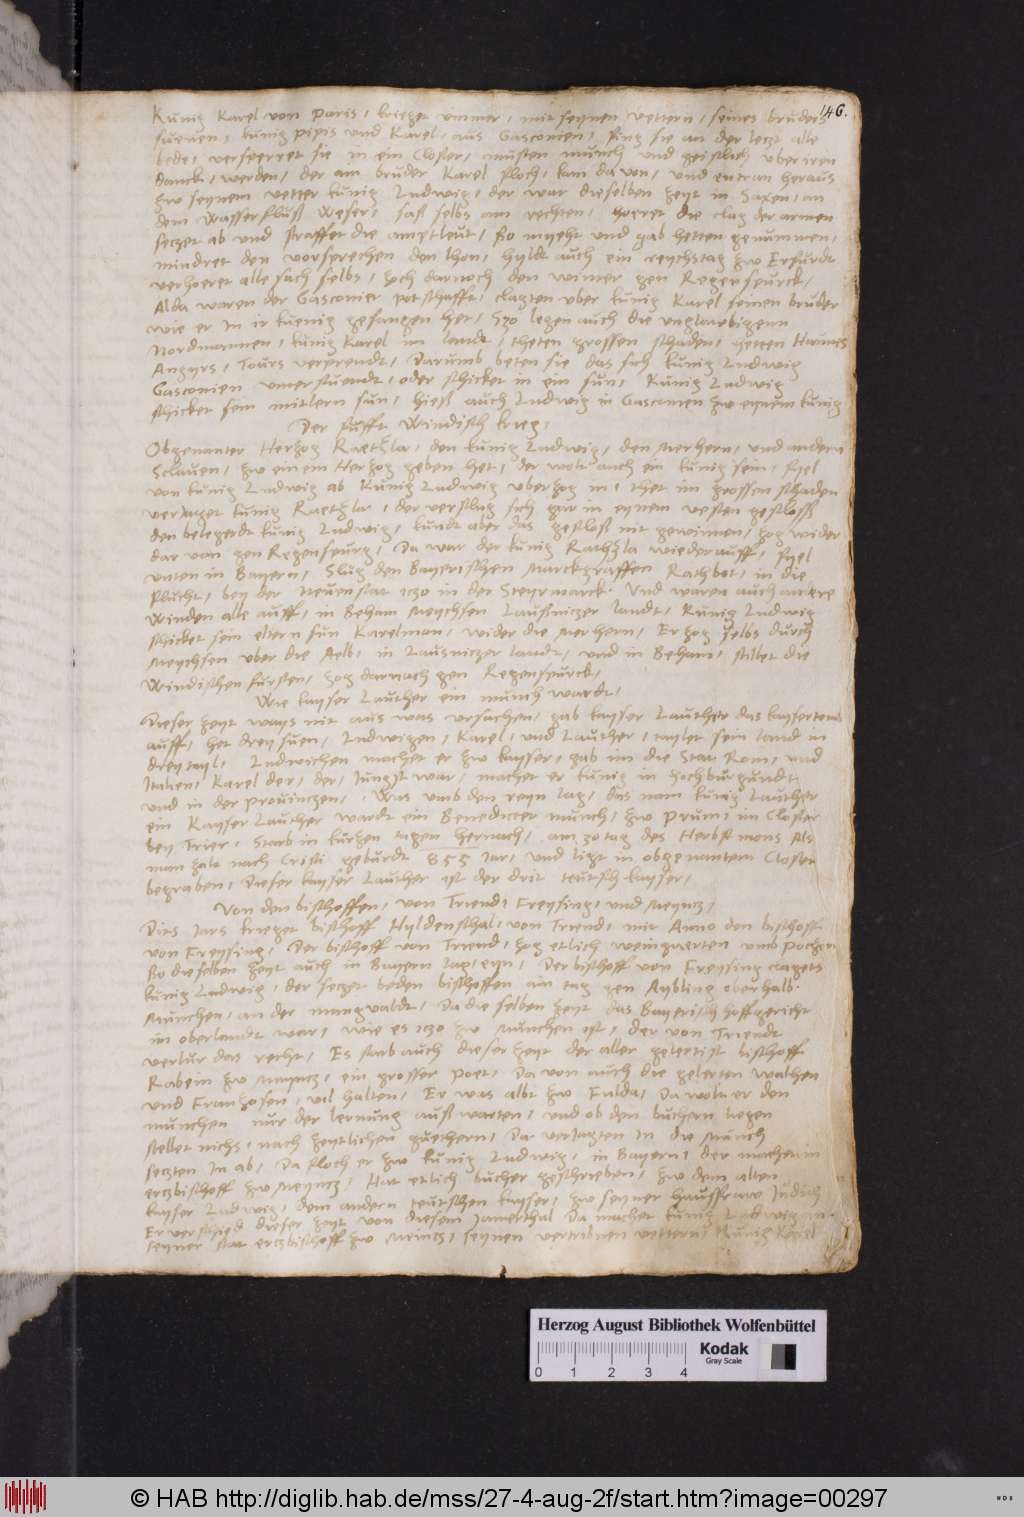 146.
Kunig Karel von Paris, krieget ymmer, mit seynen vettern, seines bruders
suenen, kunig pipis und Karel, aus Gasconien, fing sie an der letzt alle
bede, versperret sie in ein Closter, musten munch und geistlich uber iren
danck, werden, der am bruder Karel floch, kam da von, und entran heraus
zw seynem vetter kunig Ludwig, der war dieselben zeyt in Saxen, an
dem Wasserfluß Weser, saß selbs am rechten, hoeret die clag der armen
seczet ab und straffet die amptleut, so myeht und gab hetten genummen,
mindret den vorsprechen den lhon, hyldt auch ein reychstag zw Erfurdt
verhoeret alle sach selbs, zoch darnoch den winter gen Regenspurck,
Alda waren der Gasconier potschafft, clagten uber kunig Karel seinen bruder
wie er in ir kuenig gefangen het, Szo legen auch die unglaubigenn
Nordmannen, kunig Karel im landt, theten grossen schaden, hetten Hannes
Angyrs, Tours verprendt, Darumb beten sie das sich kunig Ludwig
Gasconien unterstuendt, oder schicket in ein sun, Kunig Ludwig
schicket sein mitlern sun, hieß auch Ludwig in Gasconien zw eynem kunig
Der funfft Windisch krieg,
Obgenanter Herzog Raethzla, den kunig Ludwig, den Merhern, und andern
Sclauen, zw einem Herzog geben het, der wolt auch ein kunig sein, fyel
von kunig Ludwig ab Kunig Ludwig uberzog in, thet im grossen schaden
veriaget kunig Raethzla, der verschlug sich gar in eynem vesten geschloß
den belegerdt kunig Ludwig, kundt aber das geschloß nit gewinnen, zog wider
dar von gen Regenspurg, Da war der kunig Rathzla wiederauff, fyel
unten in Bayern, Slug den Bayerischen Marckgraffen Rathbot, in die
flucht, bey der Neuenstat iczo in der Steyrmarck. Und waren auch andere
Winden alle auff, in Beham Meychsen Laußniczer landt, Kunig Ludwig
schicket sein eltern sun Karelman, wider die Merhern, Er zog selbs durch
Meychsen uber die Aelb, in Lausniczer landt, und in Beham, stillet die
Windischen fursten, zog darnach gen Regenspurck,
Wie kayser Lauther ein munch wardt,
Dieser zeyt ways nit aus was ursachen, gab kayser Lauther das kayserтumb
auff, het drey suen, Ludwigen, Karel, und Lauther, taylet sein land in
drey tayl, Ludwichen machet er zw kayser, gab im die Stat Rom, und
Italien, Karel der, der, Jungst war, machet er kunig in Hochburgundt,
und in der prouinczen, Was umb den reyn lag, das nam kunig Lauther
ein Kayser Lauther wardt ein Benedicter munch, zw Prum, im Closter
bey Trier, Starb in kurzen tagen hernach, am 30 tag des Herbstmons Als
man zalt nach Cristi geburdt 855 Jar, und ligt in obgenantem Closter
begraben, Dieser kayser Lauther ist der drit teutsch kayser,
Von den bischoffen, von Triend, Freysing, und Meyncz,
Dies Jars krieget bischoff Hyldenschal, von Triend, mit Anno den bischoff
von Freysing, Der bischoff von Triend, zog etlich weingarten umb poczen
so dieselben zeyt auch in Bayern lag, eyn, Der bischoff von Freysing clagets
kunig Ludwig, der seczet beden bischoffen ain tag gen Aybling oberhalb
Munchen, an der mangvaldt, Da die selben zeyt das Bayerisch hoffgericht
im oberlandt war, wie es iczo zw Munchen ist, der von Triendt
verlur das recht, Es starb auch dieser zeyt der aller gelertist bischoff
Raben zw Mayncz, ein grosser poet, Da von auch die gelerten walhen
und Franzosen, vil halten, Er was abt zw Fulda, Da wolt er den
munchen nur der lernung auß warten, und ob den buchern liegen
stellet nichs, nach zeytlichen guethern, Da veriagten in die Munch
seczten in ab, Da floch er zw kunig Ludwig, in Bayern, der machet in
erczbischoff zw Meyncz, Hat etlich bucher geschrieben, zw dem alten
kayser Ludwig, dem andern teutschen kayser, zw seyner hausfraw Judith
Er verschied dieser zeyt von diesem Jamerthal Da machet kunig Ludwig in
seyner stat erczbischoff zw Meincz, seynen vertribnen vettern, Kunig Karel
Herzog August Bibliothek Wolfenbüttel
Kodak
Gray Scale
0 1 2 3 4
© HAB http://diglib.hab.de/mss/27-4-aug-2f/start.htm?image=00297